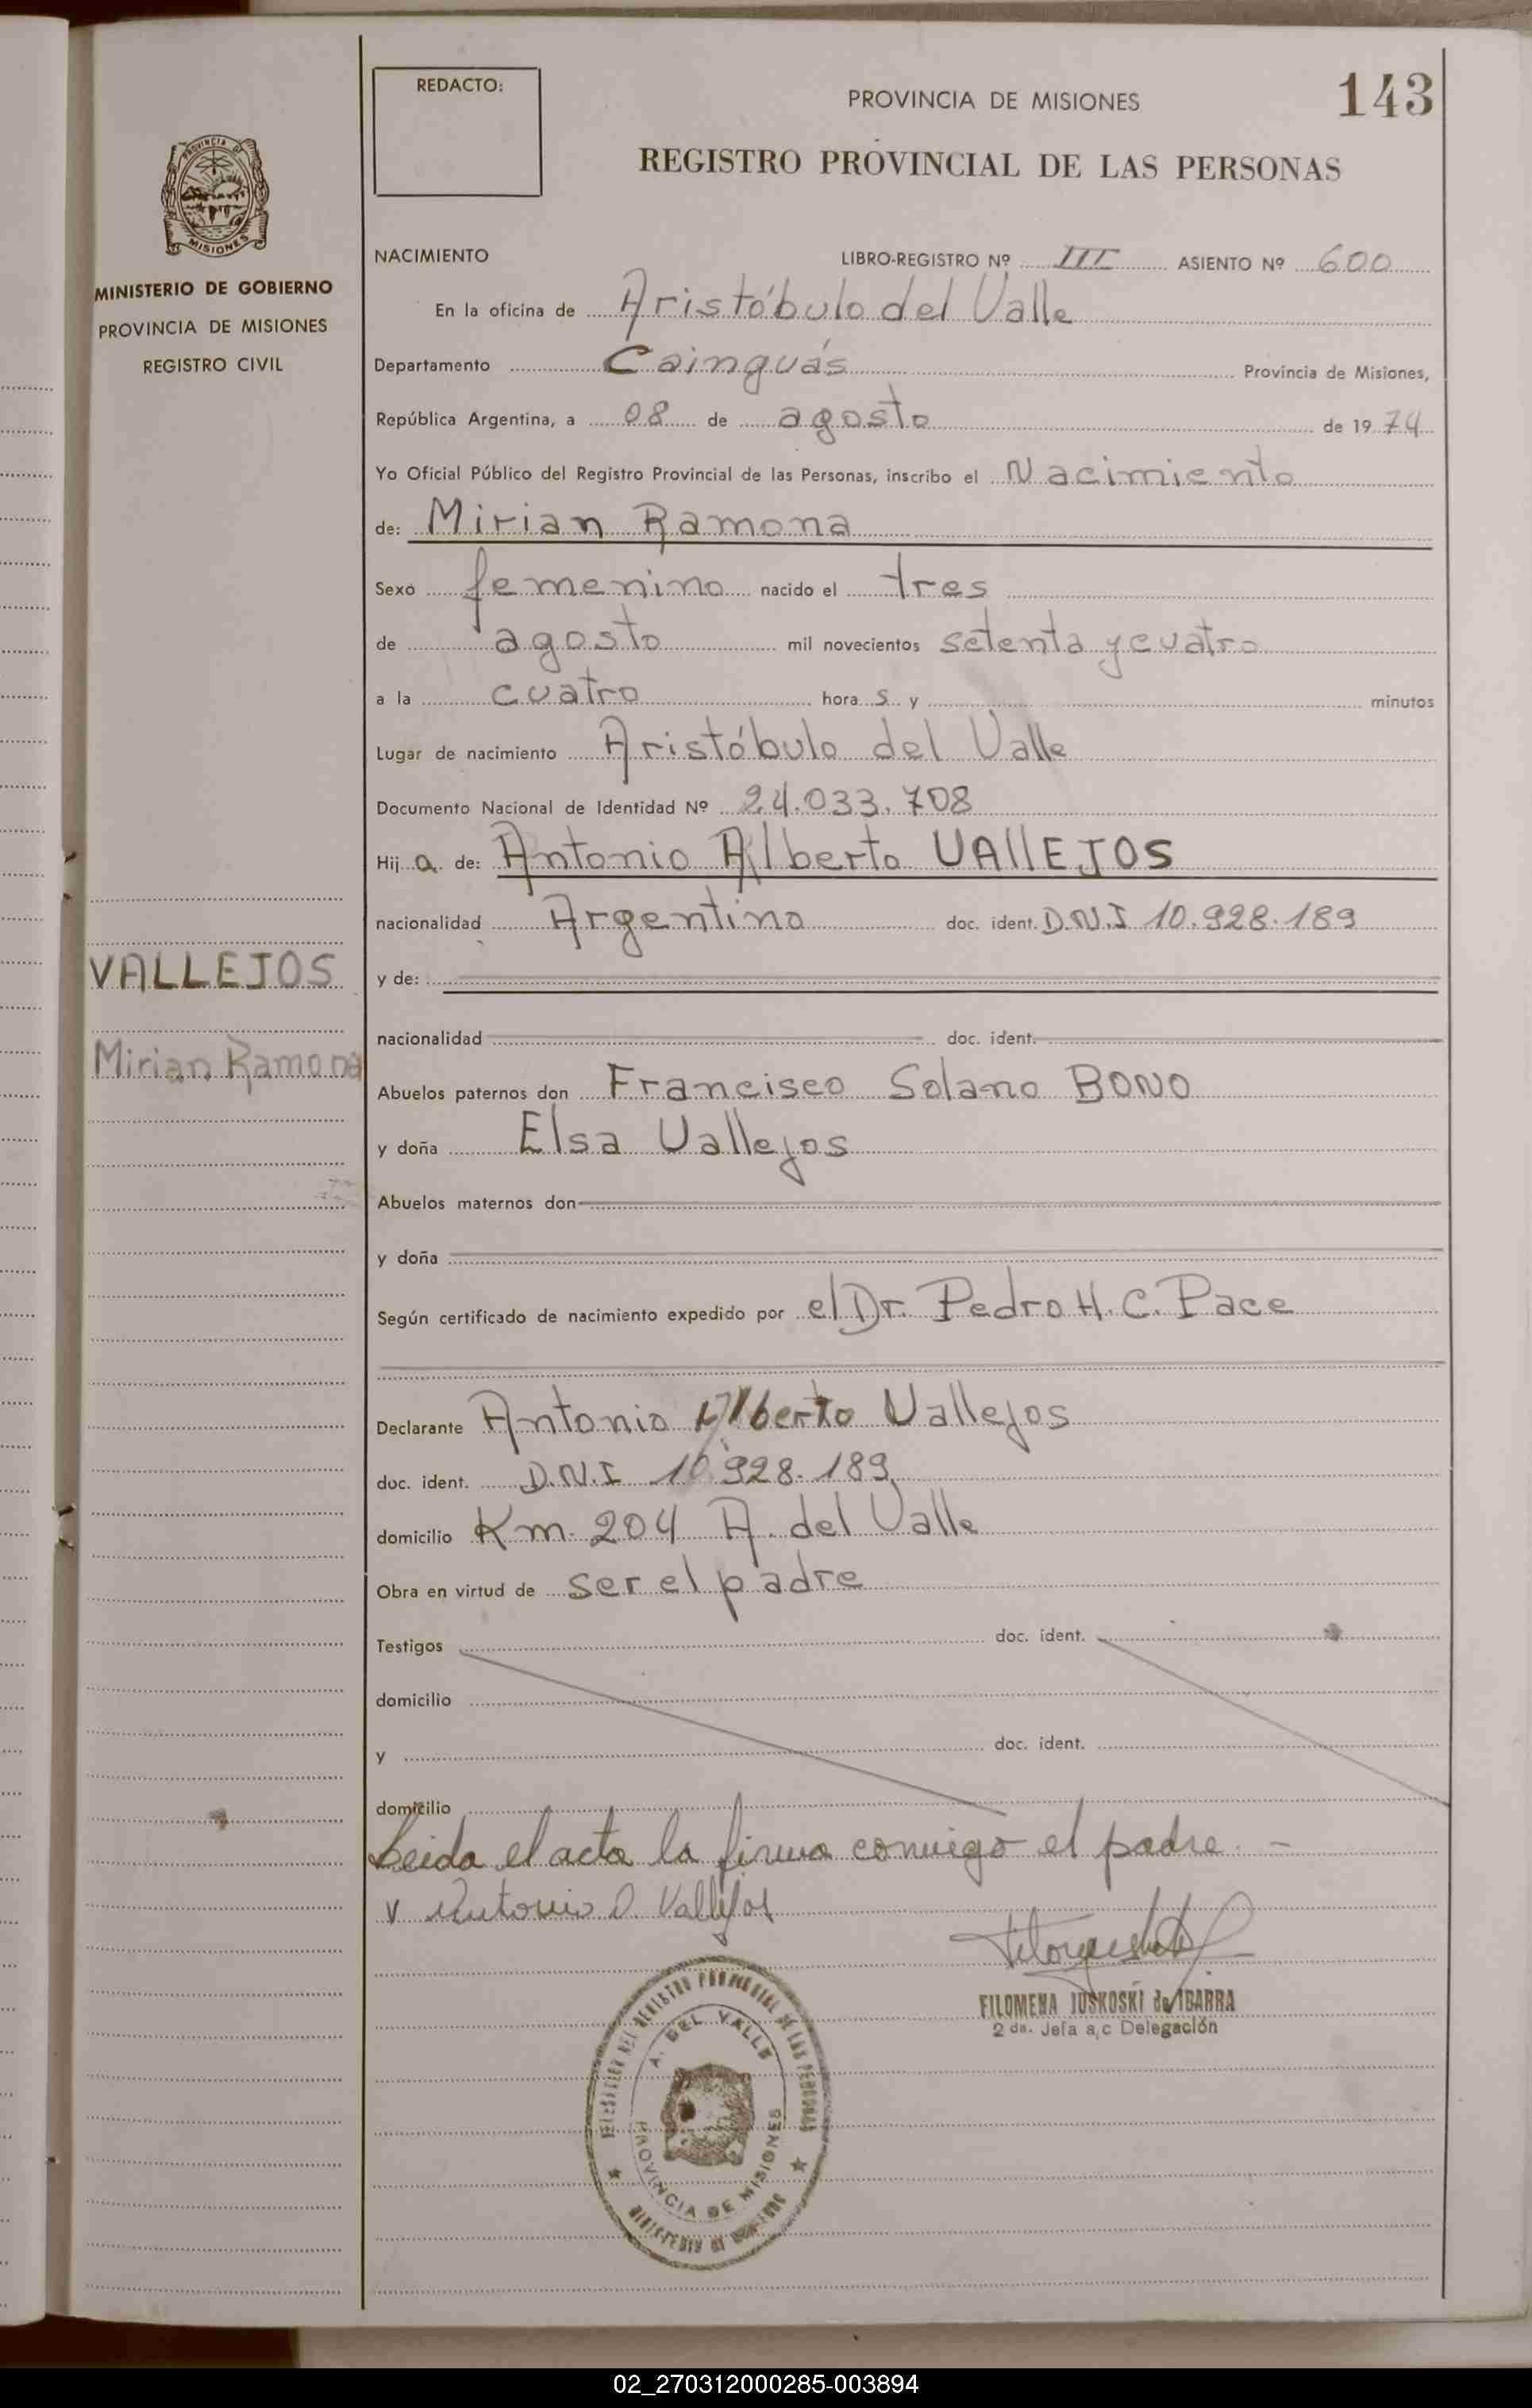 REDACTO:
PROVINCIA DE MISIONES
143
REGISTRO PROVINCIAL DE LAS PERSONAS
PROVINCIA DE
MISIONES
MINISTERIO DE GOBIERNO
PROVINCIA DE MISIONES
REGISTRO CIVIL
NACIMIENTO LIBRO-REGISTRO Nº III ASIENTO Nº 600
En la oficina de Aristóbulo del Valle
Departamento Cainguás Provincia de Misiones,
República Argentina, a 08 de agosto de 1974
Yo Oficial Público del Registro Provincial de las Personas, inscribo el Nacimiento
de: Mirian Ramona
Sexo femenino nacido el tres
de agosto mil novecientos setenta y cuatro
a la cuatro hora s y minutos
Lugar de nacimiento Aristóbulo del Valle
Documento Nacional de Identidad Nº 24.033.708
Hij a de: Antonio Alberto VAllEJOS
nacionalidad Argentino doc. ident. D.N.I 10.928.189
VALLEJOS
y de:
nacionalidad doc. ident.
Mirian Ramona
Abuelos paternos don Francisco Solano BONO
y doña Elsa Vallejos
Abuelos maternos don
y doña
Según certificado de nacimiento expedido por el Dr. Pedro H. C. Pace
Declarante Antonio Alberto Vallejos
doc. ident. D.N.I 10.928.189
domicilio Km. 204 A. del Valle
Obra en virtud de ser el padre
Testigos doc. ident.
domicilio
y doc. ident.
domicilio
Leida el acta la firma conmigo el padre. -
Antonio Vallejos
FILOMENA JUSKOSKI de IBARRA
2 da. Jefa a,c Delegación
DELEGACION DEL REGISTRO PROVINCIAL DE LAS PERSONAS
A. DEL VALLE
PROVINCIA DE MISIONES
MINISTERIO DE GOBIERNO
02_270312000285-003894